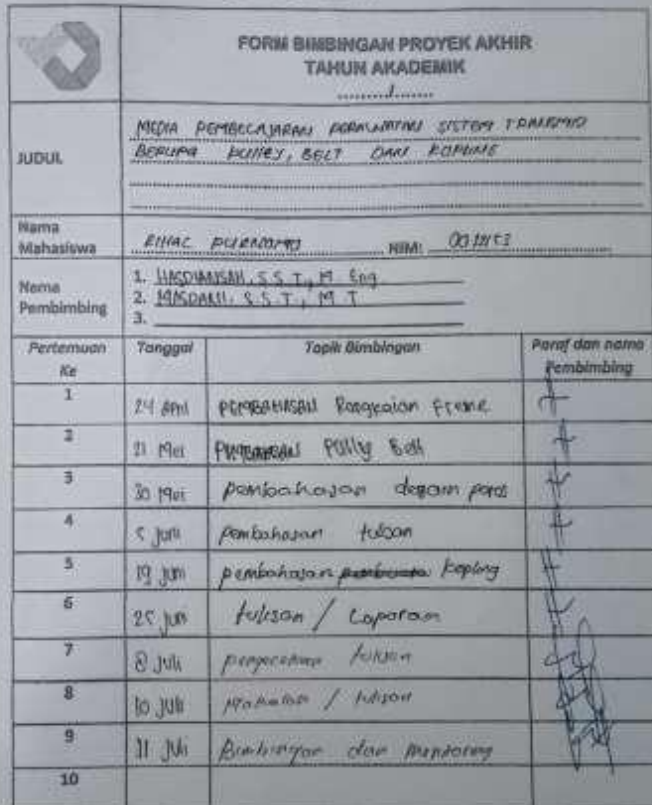 FORM BIMBINGAN PROYEK AKHIR
TAHUN AKADEMIK
......../........
JUDUL
MEDIA PEMBELAJARAN PERAWATAN SISTEM TRANSMISI
BERUPA PULLEY, BELT DAN KOPLING
Nama Mahasiswa
PURNOMO NIM:
Nama Pembimbing
1. HASDIANSAH, S.S.T., M.Eng
2. MASDANI, S.S.T., M.T
3.
Pertemuan Ke Tanggal Topik Bimbingan Paraf dan nama Pembimbing
1 24 April PEMBAHASAN Rangkaian Frame
2 21 Mei PEMBAHASAN Pully Belt
3 30 Mei pembahasan desain poros
4 5 Juni pembahasan tulisan
5 19 Juni pembahasan kopling
6 25 Juni tulisan / Laporan
7 8 Juli pengecekan tulisan
8 10 Juli Makalah / tulisan
9 11 Juli Bimbingan dan Monitoring
10